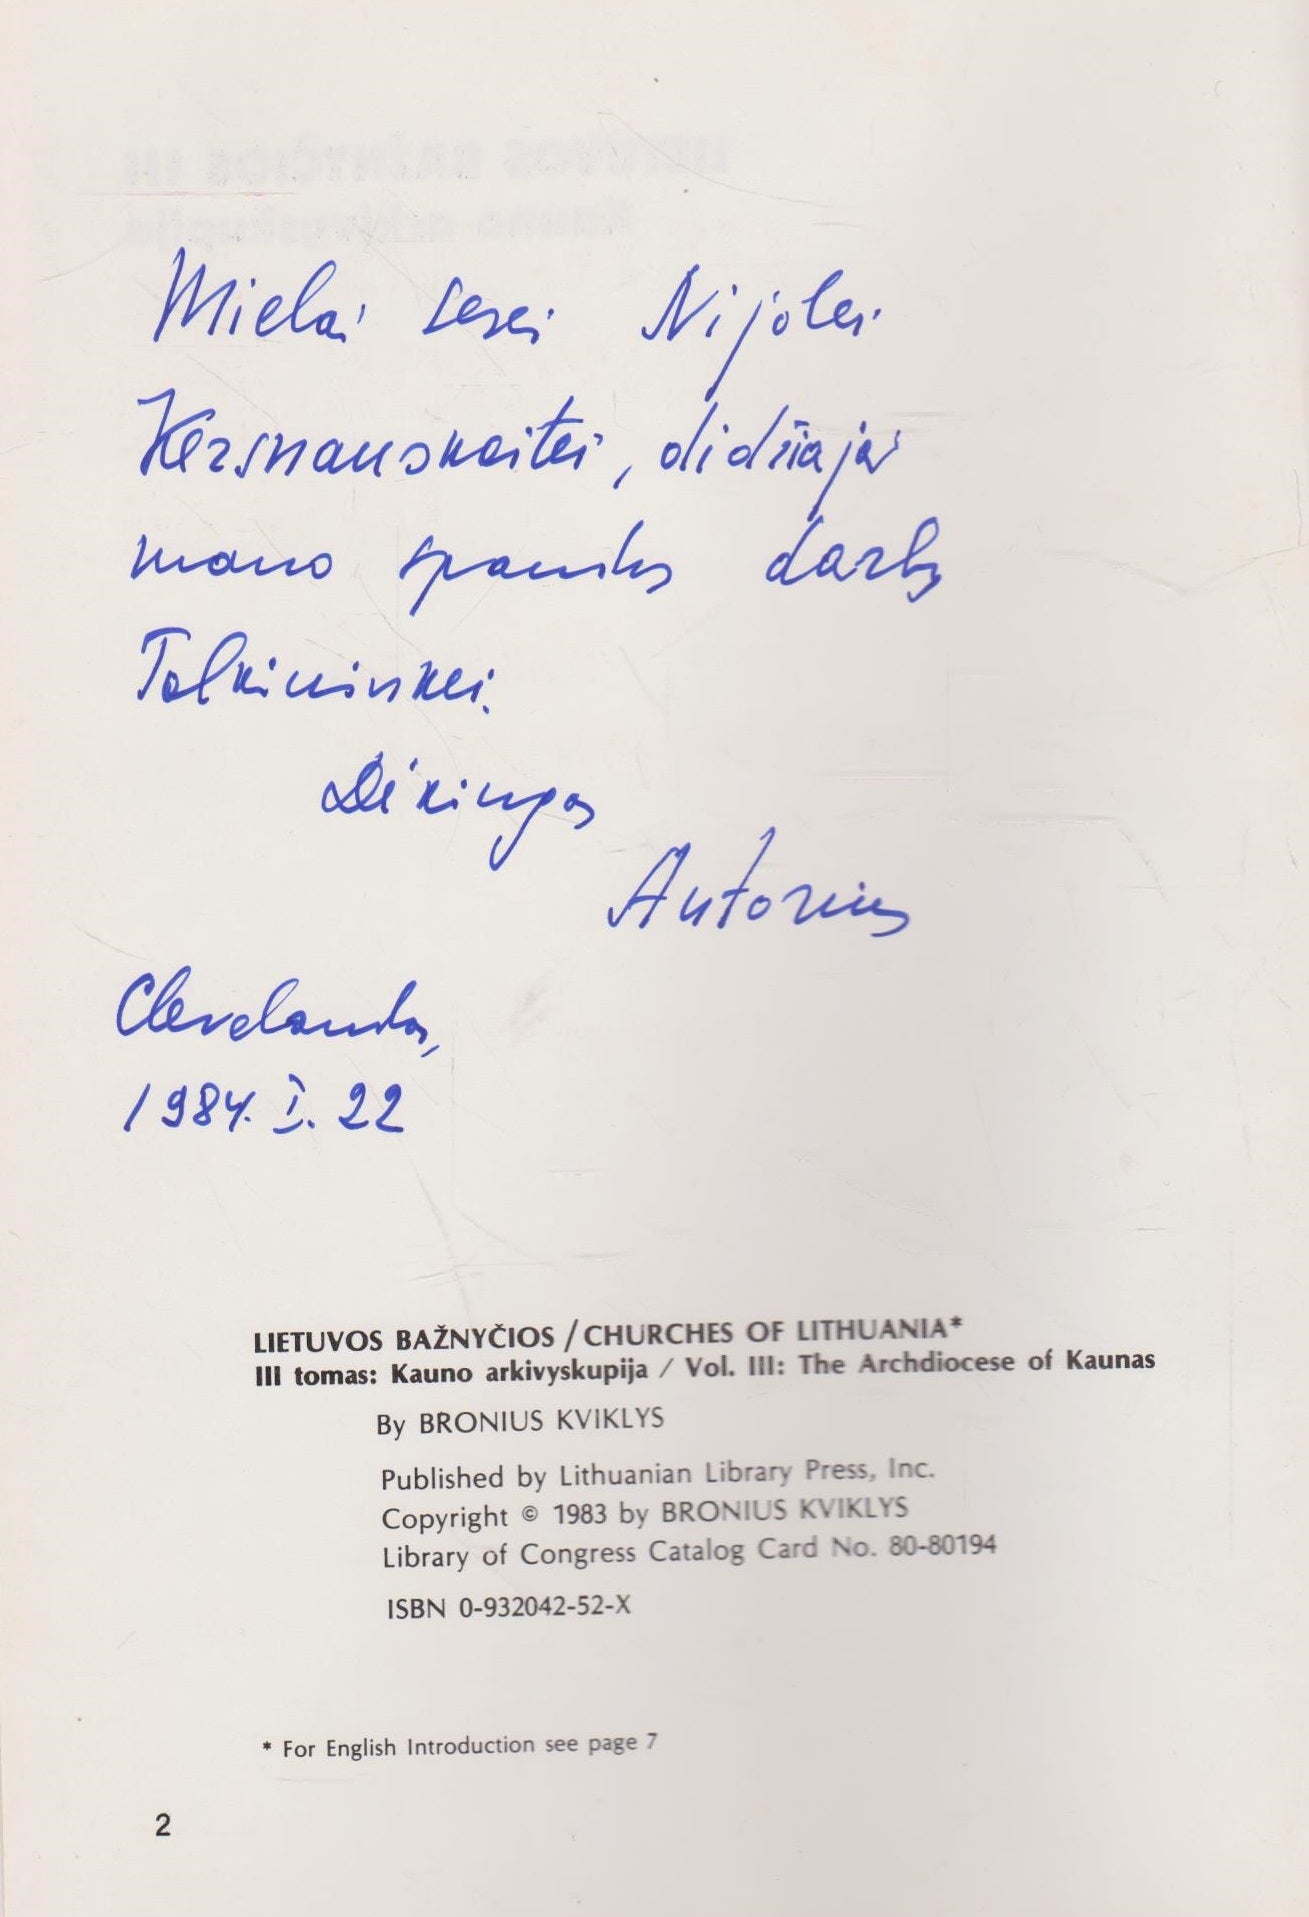 Mielai sesei Nijolei
Kersnauskaitei, didžiajai
mano spaudos darbų
Talkininkei.
Dėkingas
Autorius
Clevelandas,
1984. I. 22
LIETUVOS BAŽNYČIOS / CHURCHES OF LITHUANIA*
III tomas: Kauno arkivyskupija / Vol. III: The Archdiocese of Kaunas
By BRONIUS KVIKLYS
Published by Lithuanian Library Press, Inc.
Copyright © 1983 by BRONIUS KVIKLYS
Library of Congress Catalog Card No. 80-80194
ISBN 0-932042-52-X
* For English Introduction see page 7
2